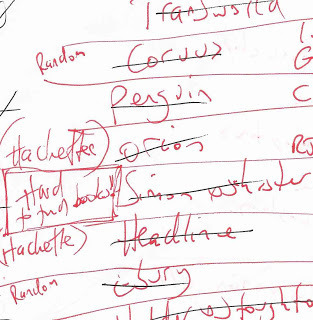 Transworld
Random Corvus
G
Penguin C
(Hachette) Orion
Hard
to find books!! Simon
(Hachette) Headline
Random Ebury